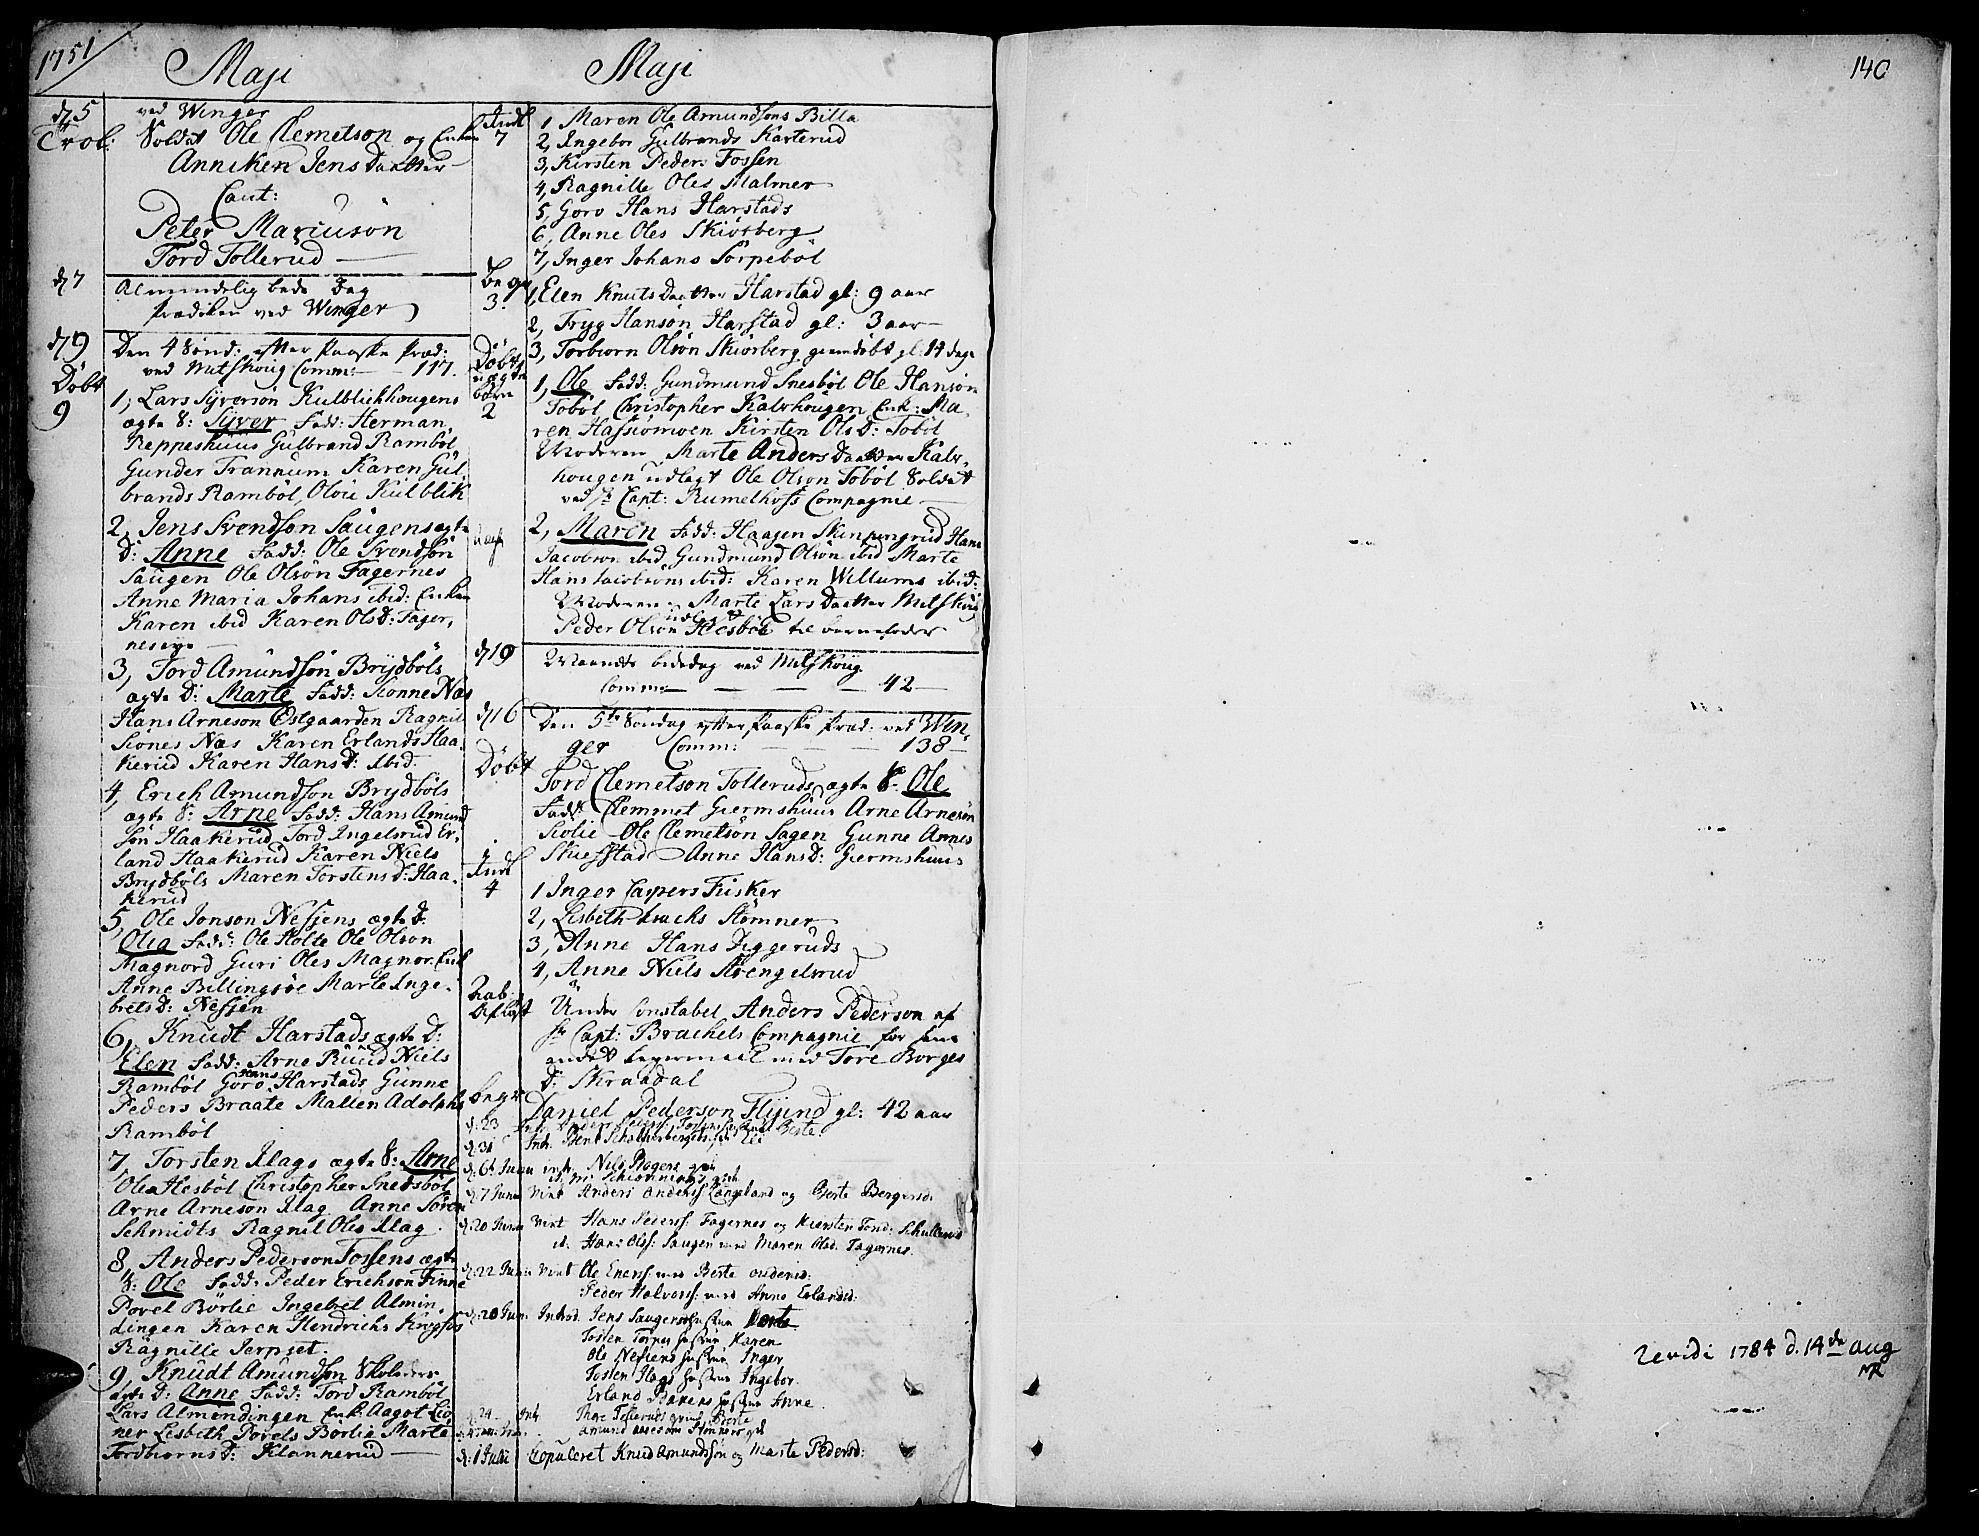 1751
Maji
d 5
Trol:
ved Winger
Soldat Ole Clemetson og Enken
Anniken Jens Daatter
Caut:
Peter Mariuson
Tord Tollerud
d 7
Almindelig bede Dag
Prædiken ved Winger
d 9
Den 4 Sønd: efter Paaske Præd:
ved Mitskoug Comm: 117.
Døbt
9
1, Lars Syverson Kulblikhougens
ægte S: Syver Fadd: Herman
Reppeshuus Gulbrand Rambøl
Gunder Trannum Karen Gul
brands Rambøl Olou Kulblik
2, Jens Svendsøn Saugens ægte
D: Anne Fadd: Ole Svendsøn
Saugen Ole Olsøn Fagernes
Anne Maria Johans ibid: Enken
Karen ibid Karen Olsd: Fager,
neseye
3, Tord Amundsøn Brydbøls
ægte D: Marte Fadd: Sionne Næs
Hans Arneson Østgaarden Ragnil
Siones Næs Karen Erlands Haa,
kerud Karen Hansd: ibid.
4, Erich Amundson Brydbøls
ægte S: Arne Fadd: Hans Amund
søn Haakerud Tord Ingelsrud Er,
land Haakerud Karen Niels
Brydbøls Maren Torstensd: Haa,
kerud
5, Ole Jonson Nessiens ægte D.
Olia Fadd: Ole Holte Ole Olson
Magnord Guri Oles Magnor. Enk
Anne Billingsøe Marte Inge,
bretsd: Nessien
6, Knudt Harstads ægte D:
Elen Fadd: Arne Ruud Niels
Rambøl Goro Hans Harstads Gunne
Peders Braate Mallen Adolphs
Rambøl
7, Torsten Mags ægte S: Arne
Ole Hesbøl Christopher Snedsbøl
Arne Arneson Mag Anne Søren
Schmidts Ragnil Oles Mag
8, Anders Pederson Fossens ægte
S: Ole Fadd: Peder Erichson Finne
Povel Børlie Ingebret Almin,
dingen Karen Hendrichs Kongsøs
Ragnille Jerpset.
9, Knudt Amundsøn
ægte D: Anne Fadd: Tord Rambøl
Lars Almendingen Enk: Aagot Lie
ner Lisbeth Povels Børlie Marte
Tordbiornsd: Klannerud
Maji
Indl
7
1 Maren Ole Amundsøns Billa
2, Ingebor Gulbrands Karterud
3, Kirsten Peders Fossen
4, Ragnille Oles Malmer
5, Goro Hans Harstads
6, Anne Oles Skiørberg
7, Inger Johans Sorpebøl
begr
3.
1, Elen Knuts Daatter Harstad gl: 9 aar
2, Tryg Hansøn Harstad gl: 3 aar
3, Torbiorn Olsøn Skiørberg giemdøbt gl: 14 dage
Døbt
uægte
børn
2
1, Ole Fadd: Gundmund Snesbøl Ole Hansøn
Tobøl Christopher Kalvhougen Enk: Ma,
ren Hassiomoen Kirsten Olsd: Tobøl
Moderen Marte Anders Daatter Kalv,
hougen udlagt Ole Olson Tobøl Soldat
ved Hr Capt: Rumelhoffs Compagnie
2, Maren Fadd: Haagen Skinpungrud Hans
Jacobson ibid. Gundmund Olsøn ibid Marte
Hans Jacobsøns ibid: Karen Willums ibid:
Moderen Marte Lars Daatter Mitskoug
udlagt
Peder Olsøn Hesbøl til barnefader
d 19
Maanedts bededag ved Mitskoug
Comm: 42
d 16
Den 5te Søndag efter Paaske Præd: ved Win,
ger Comm: 138
Døbt
Tord Clemetson Tolleruds ægte S. Ole
Fadd: Clemmet Giermshuus Arne Arneson
Siolie Ole Clemetsøn Sagen Gunne Annes
Skiefstad Anne Hansd: Giermshuus
Indl
4
1 Inger Caspers Fisker
2, Lisbeth Isachs Stømner
3, Anne Hans Diggeruds
4, Anne Niels Strengelsrud
Pub.
Afløst
Under Constabel Anders Pederson af
Hr Capt: Brachels Compagnie for sin
andet leyermaal med Tore Borges
D: Skraadal
begr
Daniel Pederson Flyind gl: 42 aar
d: 23
d: 31
d: 6t Juni int. Nils Rogers
d: 7 Juni Vint Anders Anders Langeland og Berte Bergersd.
d: 20 Junii Vint Hans Peders: Fagernes og Kiersten Tond: Schullerud
it. Hans Olss: Saugen med Maren Olsd. Fagernes.
d: 22 Juni Vint Ole Eners: med Berte
Peder Halvors: med Anne Erlandsd:
d: 28 Juni Introd. Jens Saugens hustrue
Tosten Tornes hustrue Karen
Ole Nessiens hustrue Inger
Tosten Mags hustrue Ingebor.
Erland hustrue Anne.
d: 24
d: 1 Julii Copuleret Knud Amundsøn og Marte Pedersd:
140
revidi 1784 d. 14de aug
MR